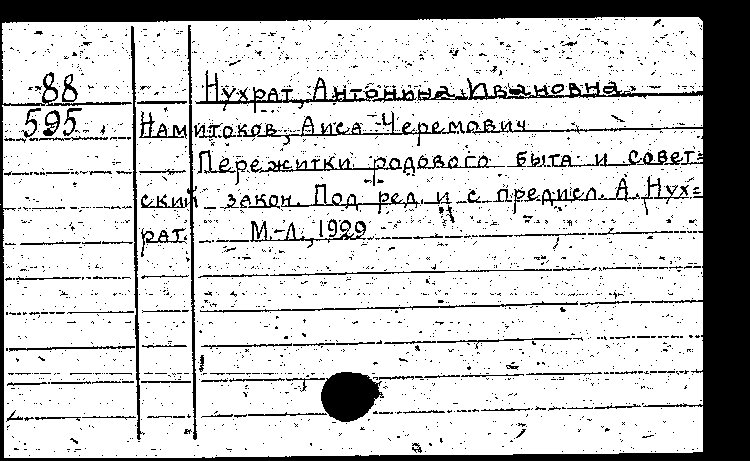 88 Нухрат, Антонина Ивановна.
595 Намитоков, Аиса Черемович
Пережитки родового быта и совет=
ский закон. Под ред. и с предисл. А. Нух=
рат. М.-Л., 1929